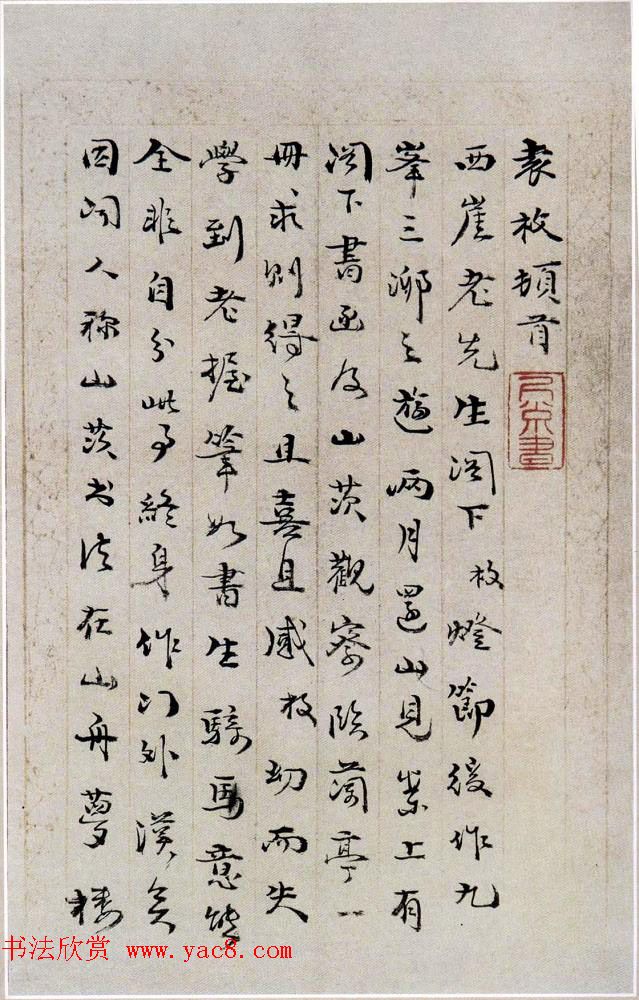 袁枚頓首
西崖老先生閣下枚燈節後作九
峯三泖之遊兩月還山見案上有
閣下書函及山茨觀察臨蘭亭一
冊求則得之且喜且感枚幼而失
學到老握筆如書生騎馬意態
全非自分此事終身作门外漢矣
因人称山茨书法在山舟夢樓
书法欣赏 www.yac8.com